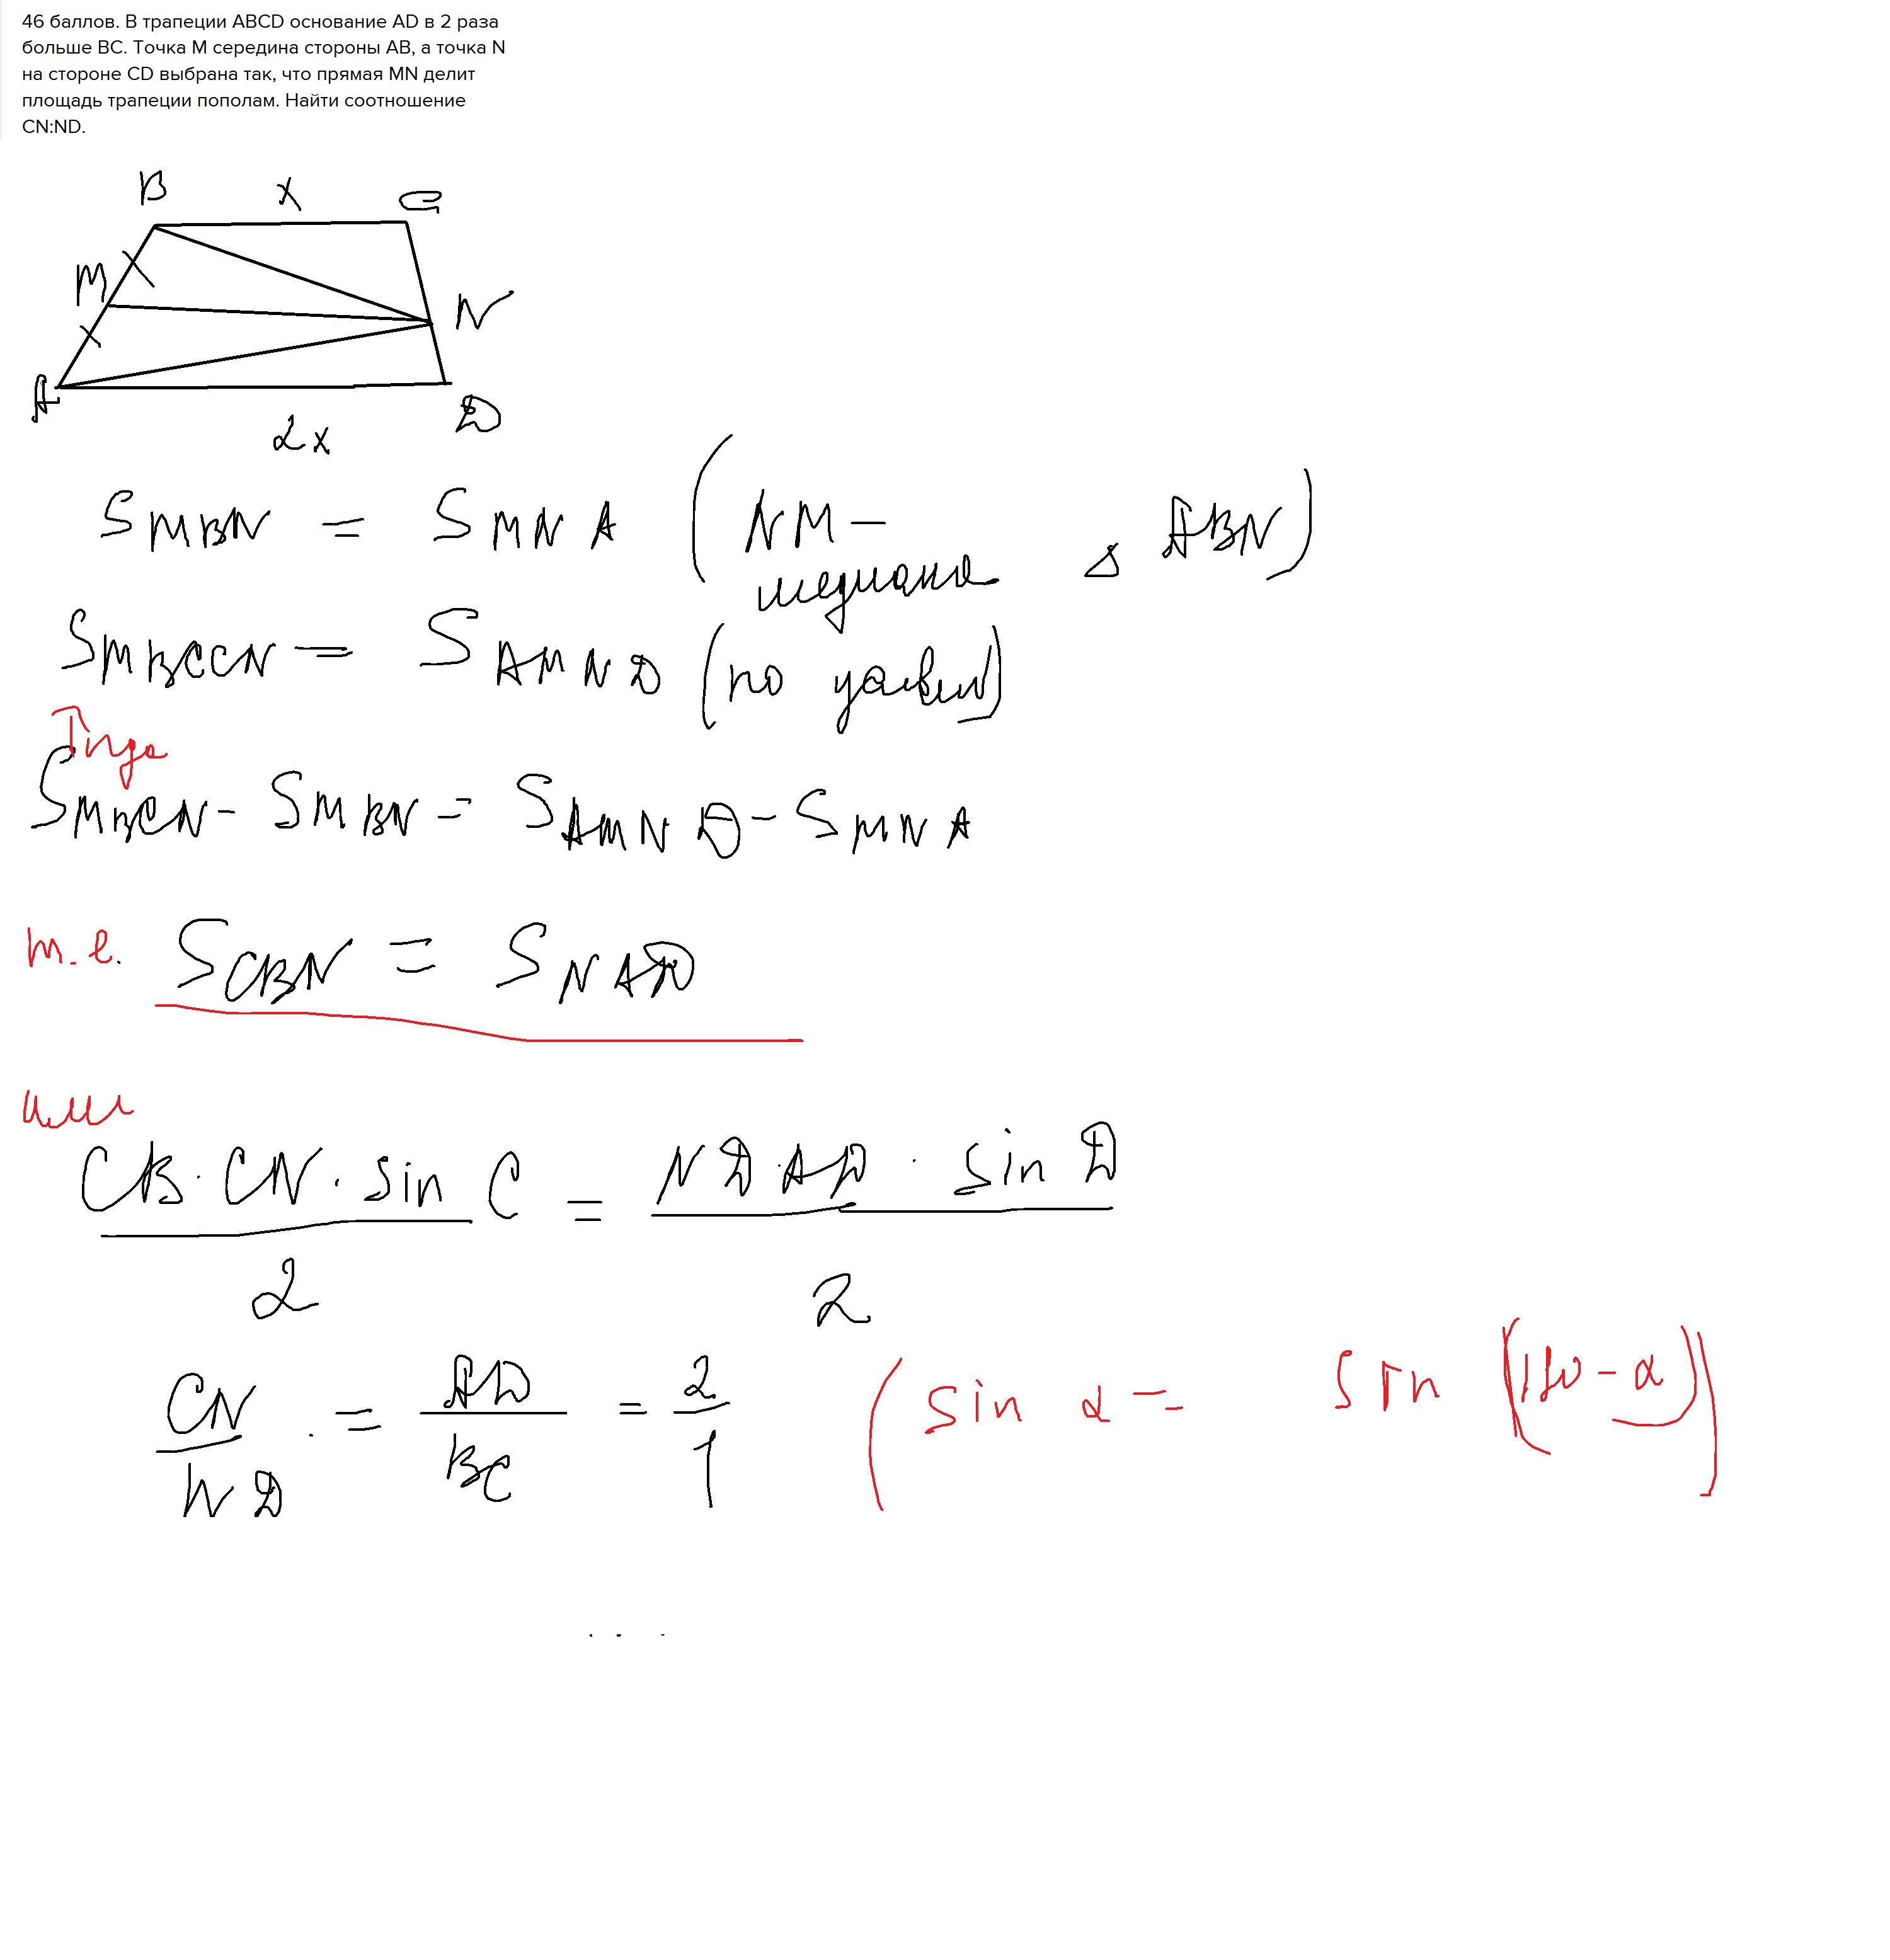 46 баллов. В трапеции ABCD основание AD в 2 раза
больше BC. Точка M середина стороны AB, а точка N
на стороне CD выбрана так, что прямая MN делит
площадь трапеции пополам. Найти соотношение
CN:ND.
B x C
M N
A D
2x
S MBN = S MNA ( NM – медиана △ ABN )
S MBCCN = S AMND (по условию)
Тогда
S MBCN - S MBN = S AMND - S MNA
т.е. S CBN = S NAD
или
CB · CN · sin C / 2 = ND · AD · sin D / 2
CN / ND = AD / BC = 2 / 1 ( sin α = sin (180 - α) )